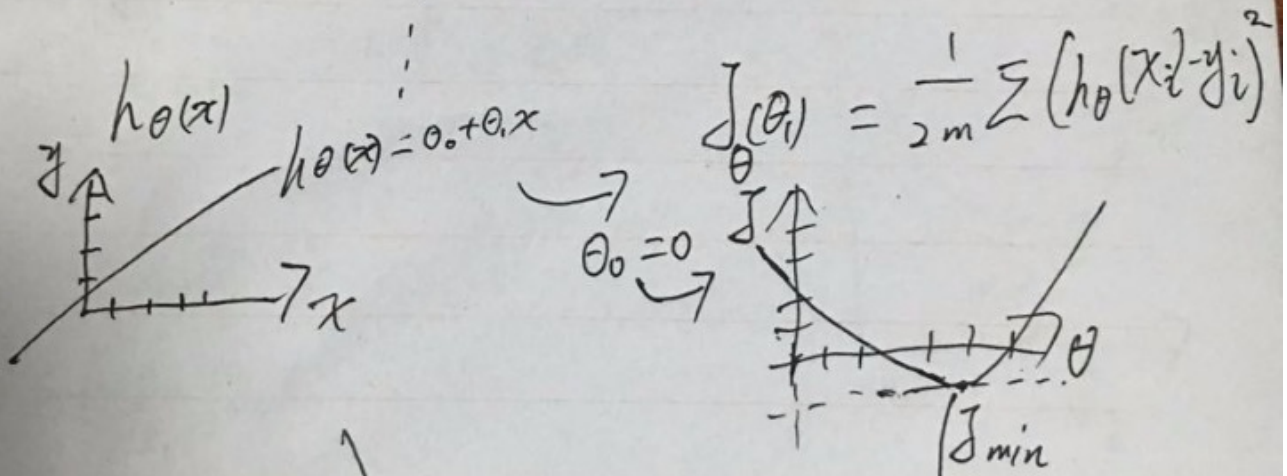 hθ(x)
y
hθ(x) = θ₀ + θ₁x
x
Jθ(θ₁) = 1/2m Σ(hθ(xi) - yi)²
θ₀ = 0
J
θ
Jmin